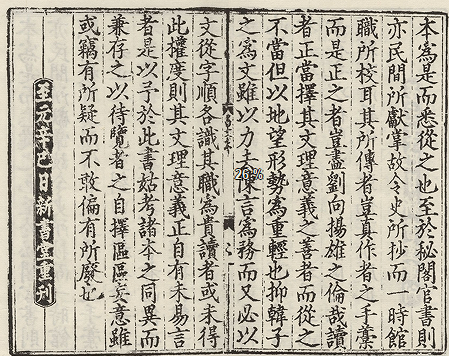 本為是而悉從之也至於秘閣官書則
亦民間所獻掌故令史所抄而一時館
職所校耳其所傳者豈真作者之手藁
而是正之者豈盡劉向揚雄之倫哉讀
者正當擇其文理意義之善者而從之
不當但以地望形勢為重輕也抑韓子
之為文雖以力去陳言為務而又必以
文從字順各識其職為貴讀者或未得
此權度則其文理意義正自有未易言
者是以予於此書姑考諸本之同異而
兼存之以待覽者之自擇區區妄意雖
或竊有所疑而不敢偏有所廢也
至元辛巳日新書堂重刊
26%